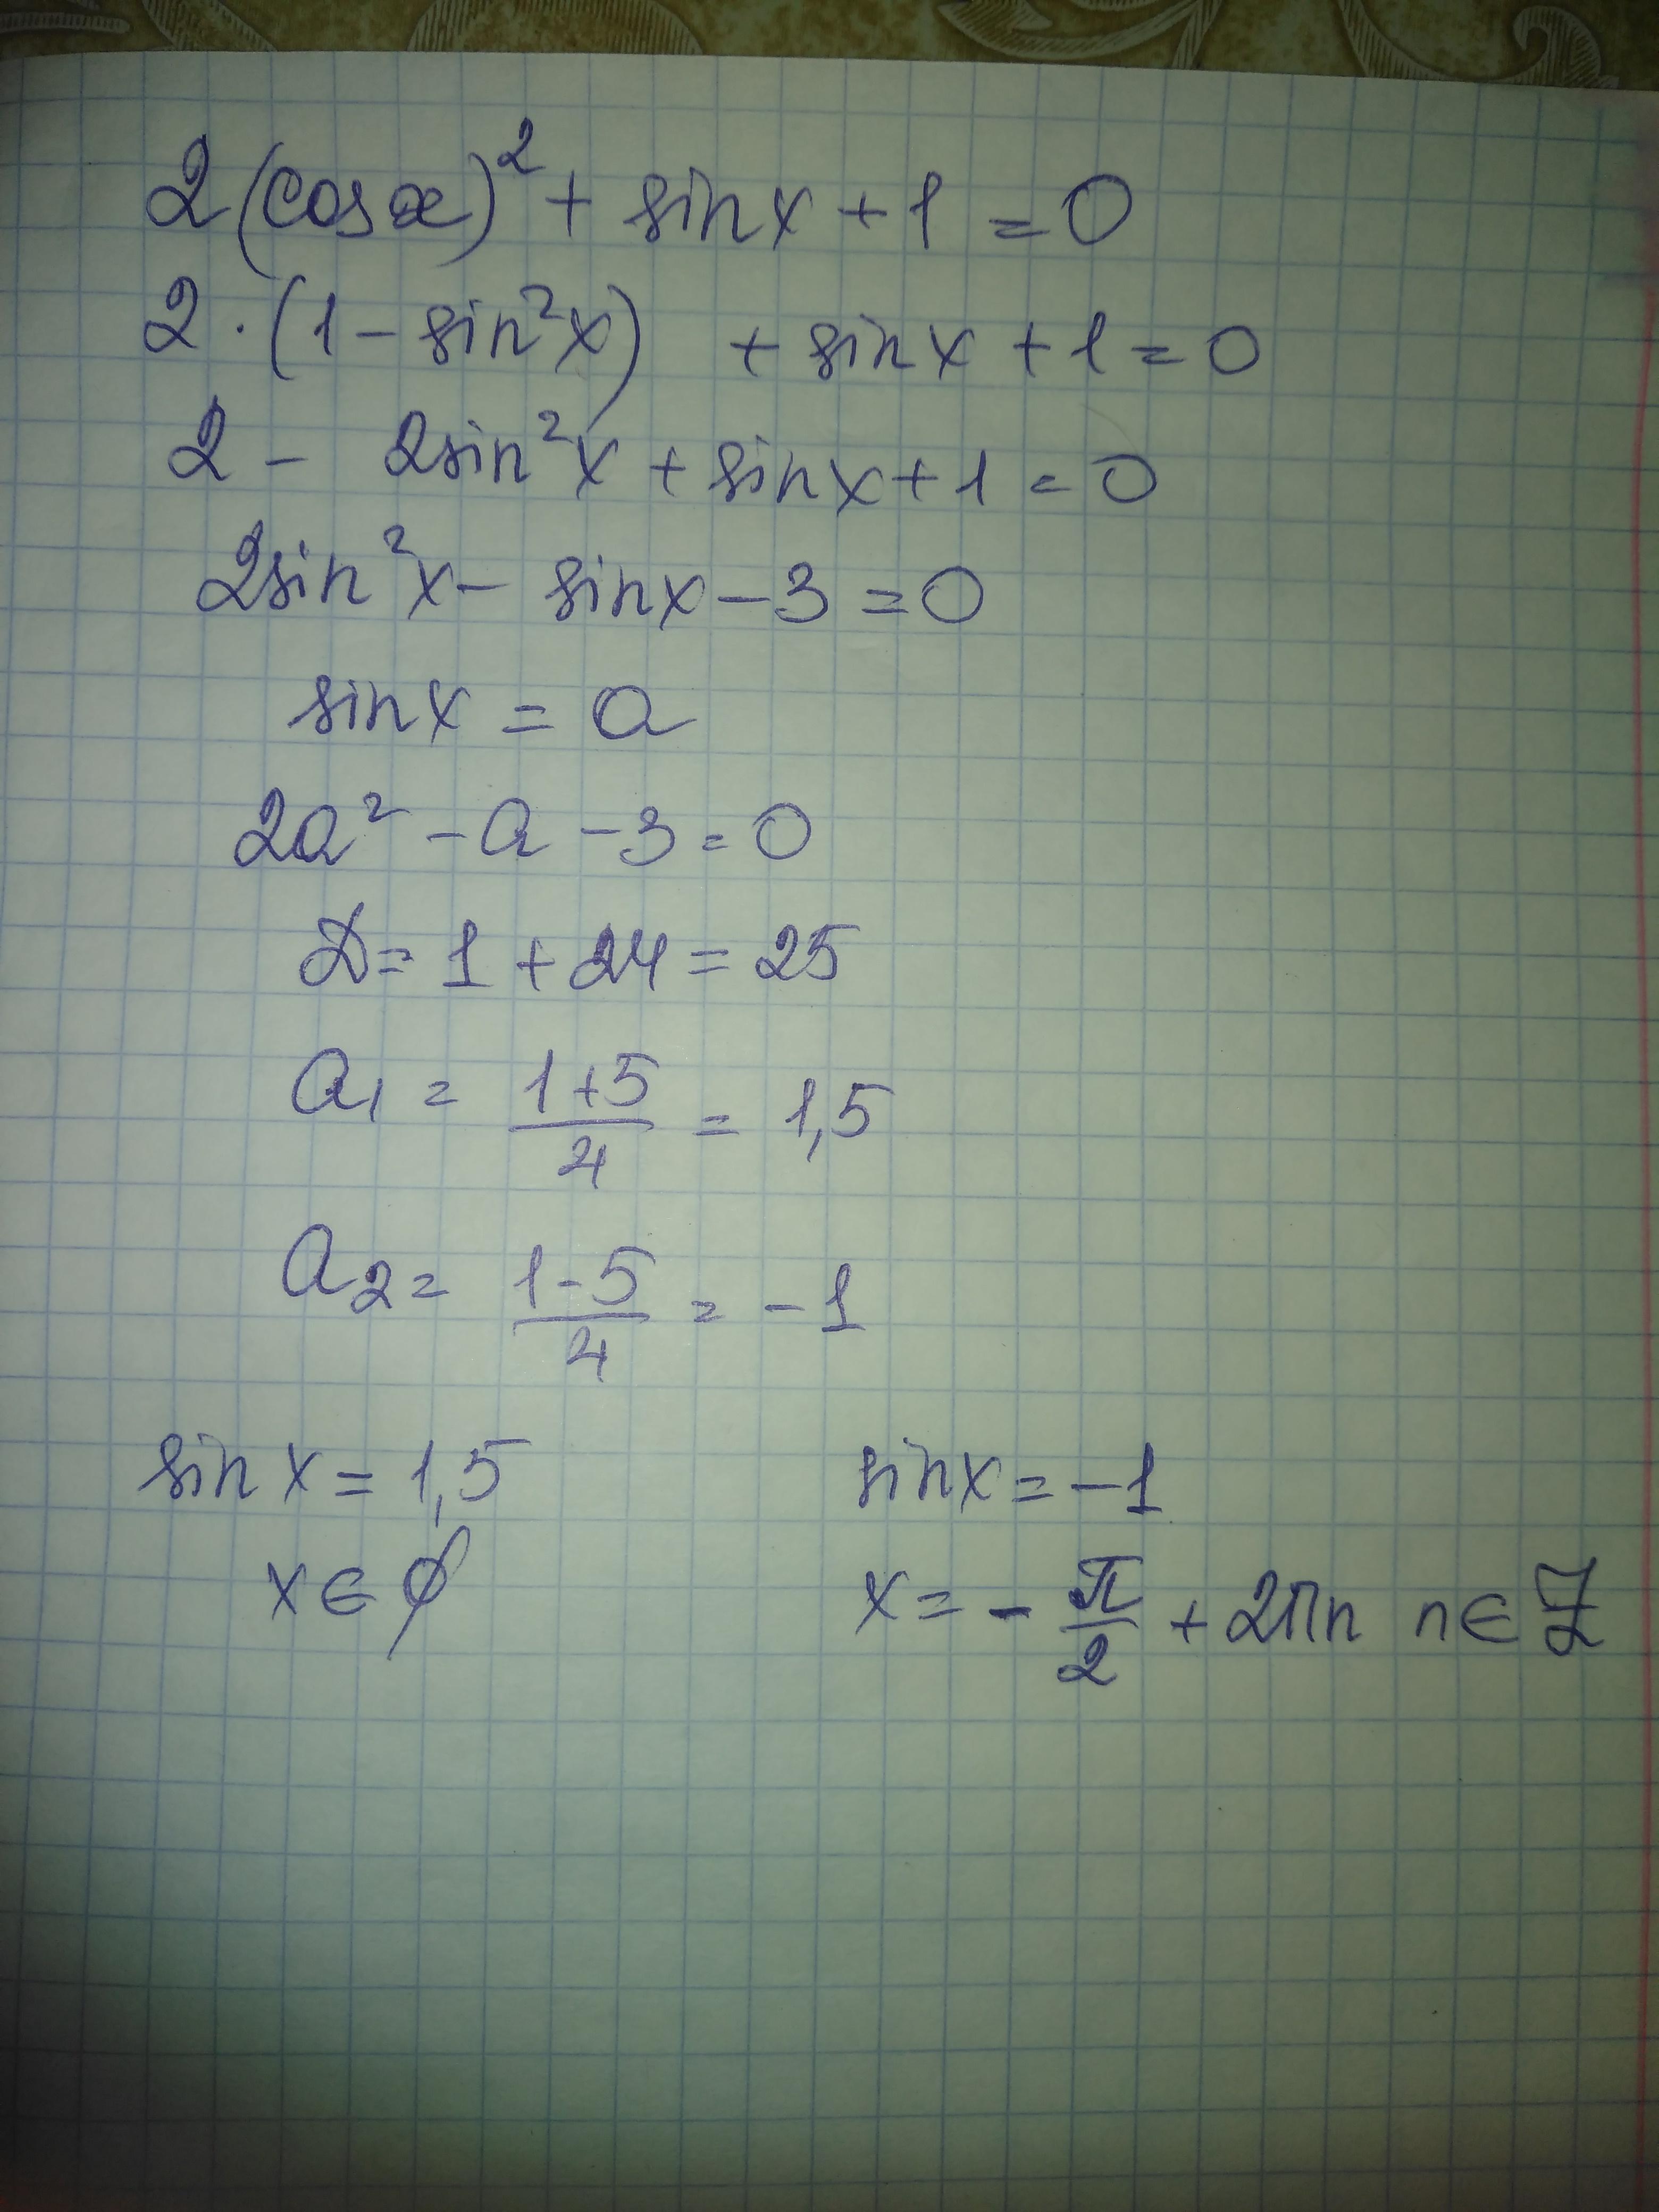 2(cos x)² + sin x + 1 = 0
2 · (1 - sin²x) + sin x + 1 = 0
2 - 2sin²x + sin x + 1 = 0
2sin²x - sin x - 3 = 0
sin x = a
2a² - a - 3 = 0
D = 1 + 24 = 25
a₁ = (1+5)/4 = 1,5
a₂ = (1-5)/4 = -1
sin x = 1,5 sin x = -1
x ∈ ∅ x = - π/2 + 2πn n ∈ Z